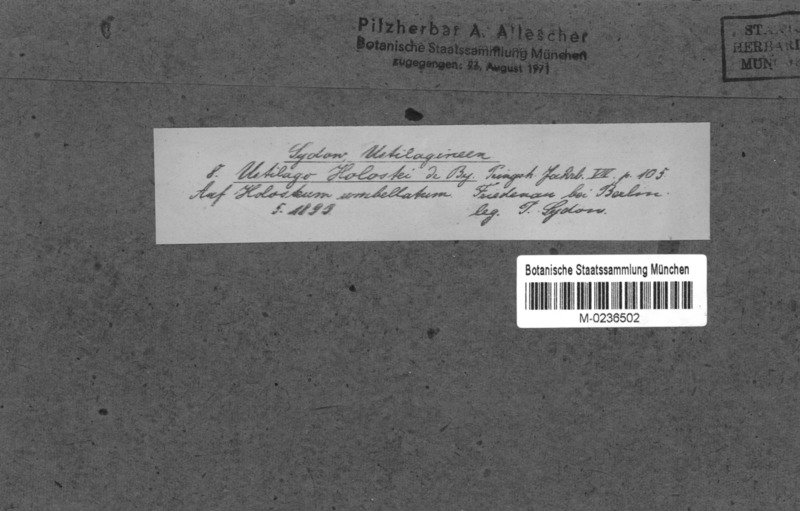 Pilzherbar A. Allescher
Botanische Staatssammlung München
zugegangen: 26. August 1971
HERBARI
MÜN
Sydow, Ustilagineen
8. Ustilago Holostei de By. Pringsh. Jahrb. VII. p. 105
Auf Holosteum umbellatum. Friedenau bei Berlin.
5. 1893 leg. P. Sydow.
Botanische Staatssammlung München
M-0236502